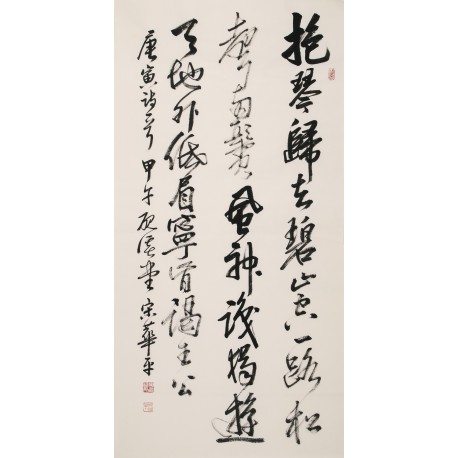 抱琴歸去碧山空一路松
聲兩鬢風神識獨遊
天地外低眉寧肯謁王公
唐寅詩一首 甲午 堂 宋華平